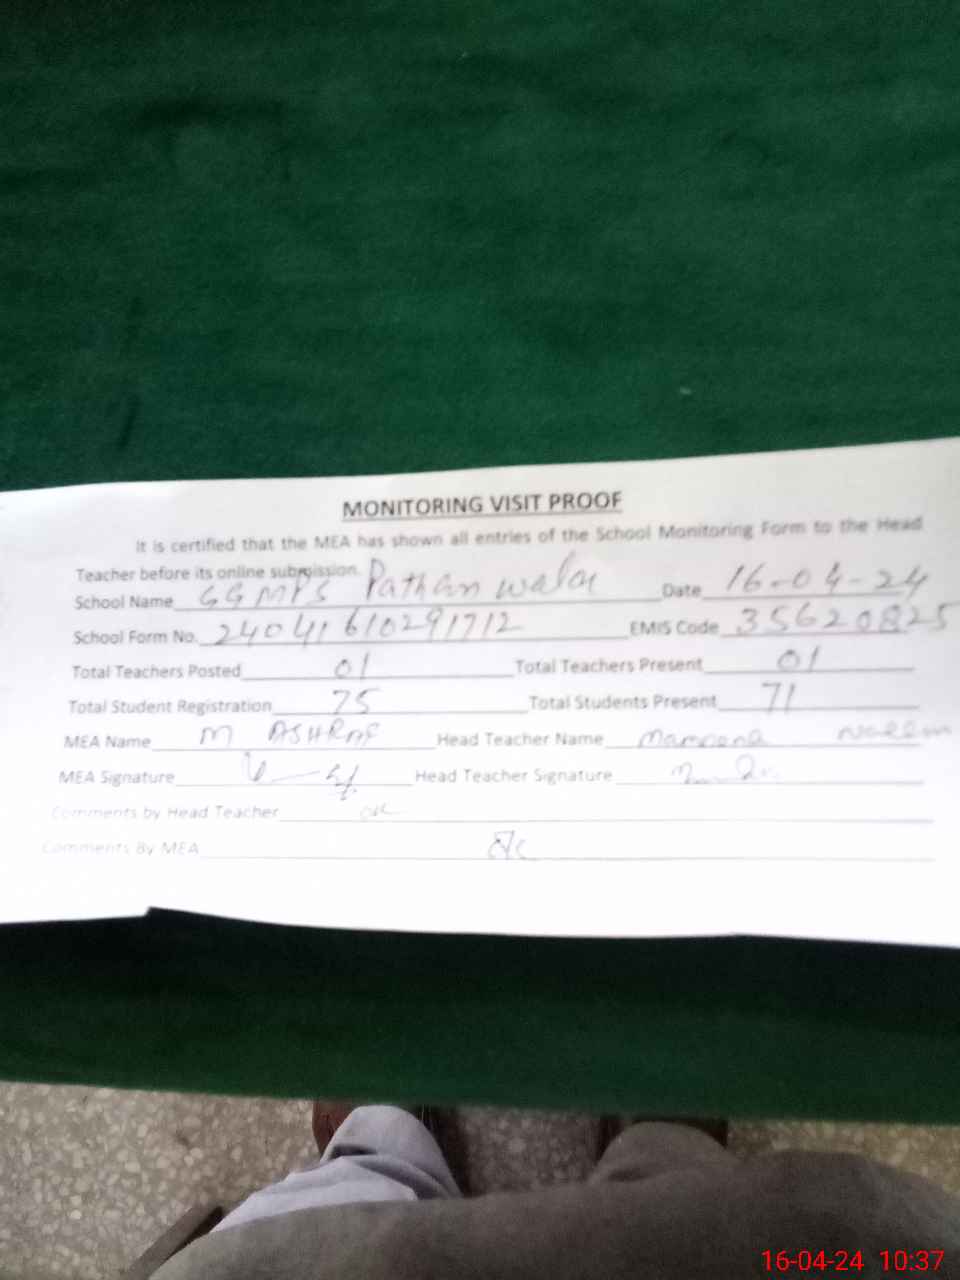 MONITORING VISIT PROOF
It is certified that the MEA has shown all entries of the School Monitoring Form to the Head
Teacher before its online submission.
School Name GGMPS Pathan wala Date 16-04-24
School Form No. 24041610291712 EMIS Code 35620825
Total Teachers Posted 01 Total Teachers Present 01
Total Student Registration 75 Total Students Present 71
MEA Name M ASHRAF Head Teacher Name
MEA Signature Head Teacher Signature
Comments by Head Teacher ok
Comments By MEA ok
16-04-24 10:37